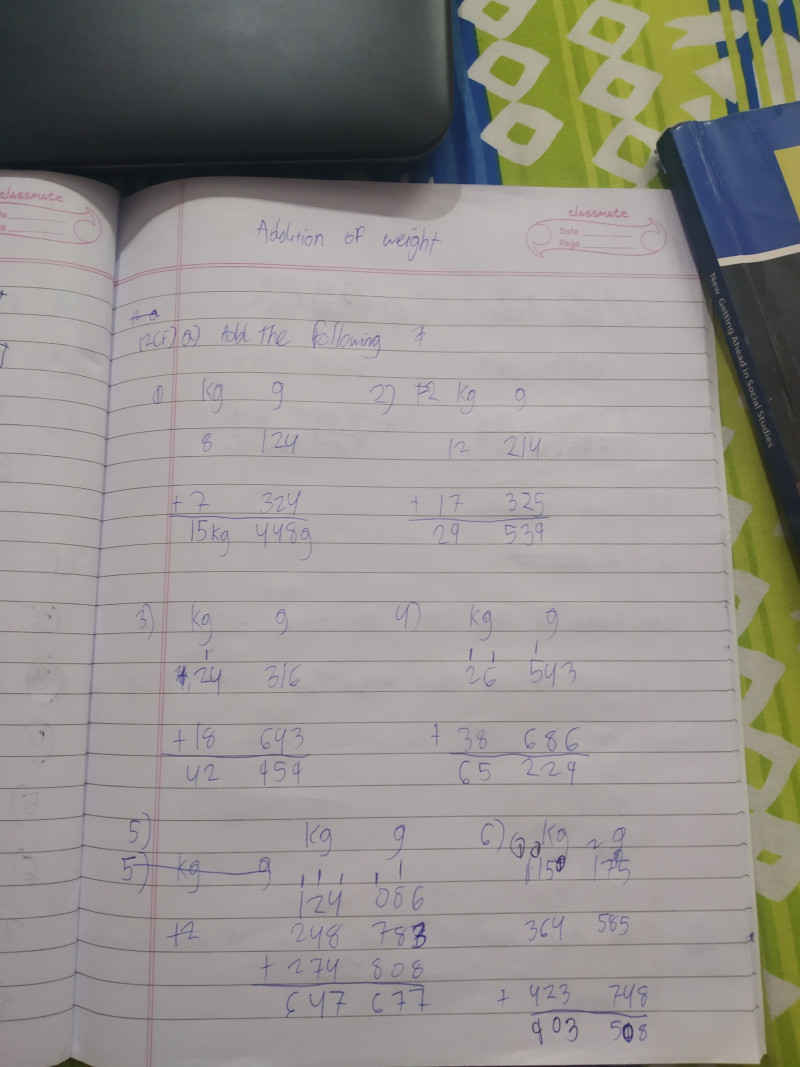 classmate
classmate
Date
Page
Addition of weight
12(F) a) Add the following
1) kg g 2) kg g
8 124 12 214
+ 7 324 + 17 325
15kg 448g 29 539
3) kg g 4) kg g
24 316 26 543
+ 18 643 + 38 686
42 959 65 229
5) kg g 6) kg g
5) kg g 115 175
124 086
248 783 364 585
+ 274 808
647 677 + 423 748
903 508
New Getting Ahead in Social Studies